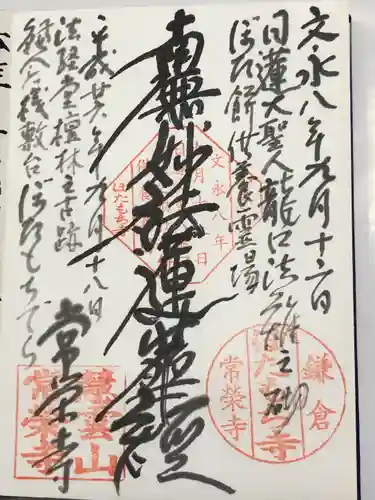 文永八年九月十二日
日蓮大聖人龍口法難之砌
ぼた餅供養霊場
南無妙法蓮華経
平成廿六年九月十八日
法経堂檀林之古跡
桟敷台ぼたもちでら
常栄寺
文永八年
月十
日
ぼたもち
鎌倉
ぼたもち寺
常榮寺
慧雲山
常栄寺